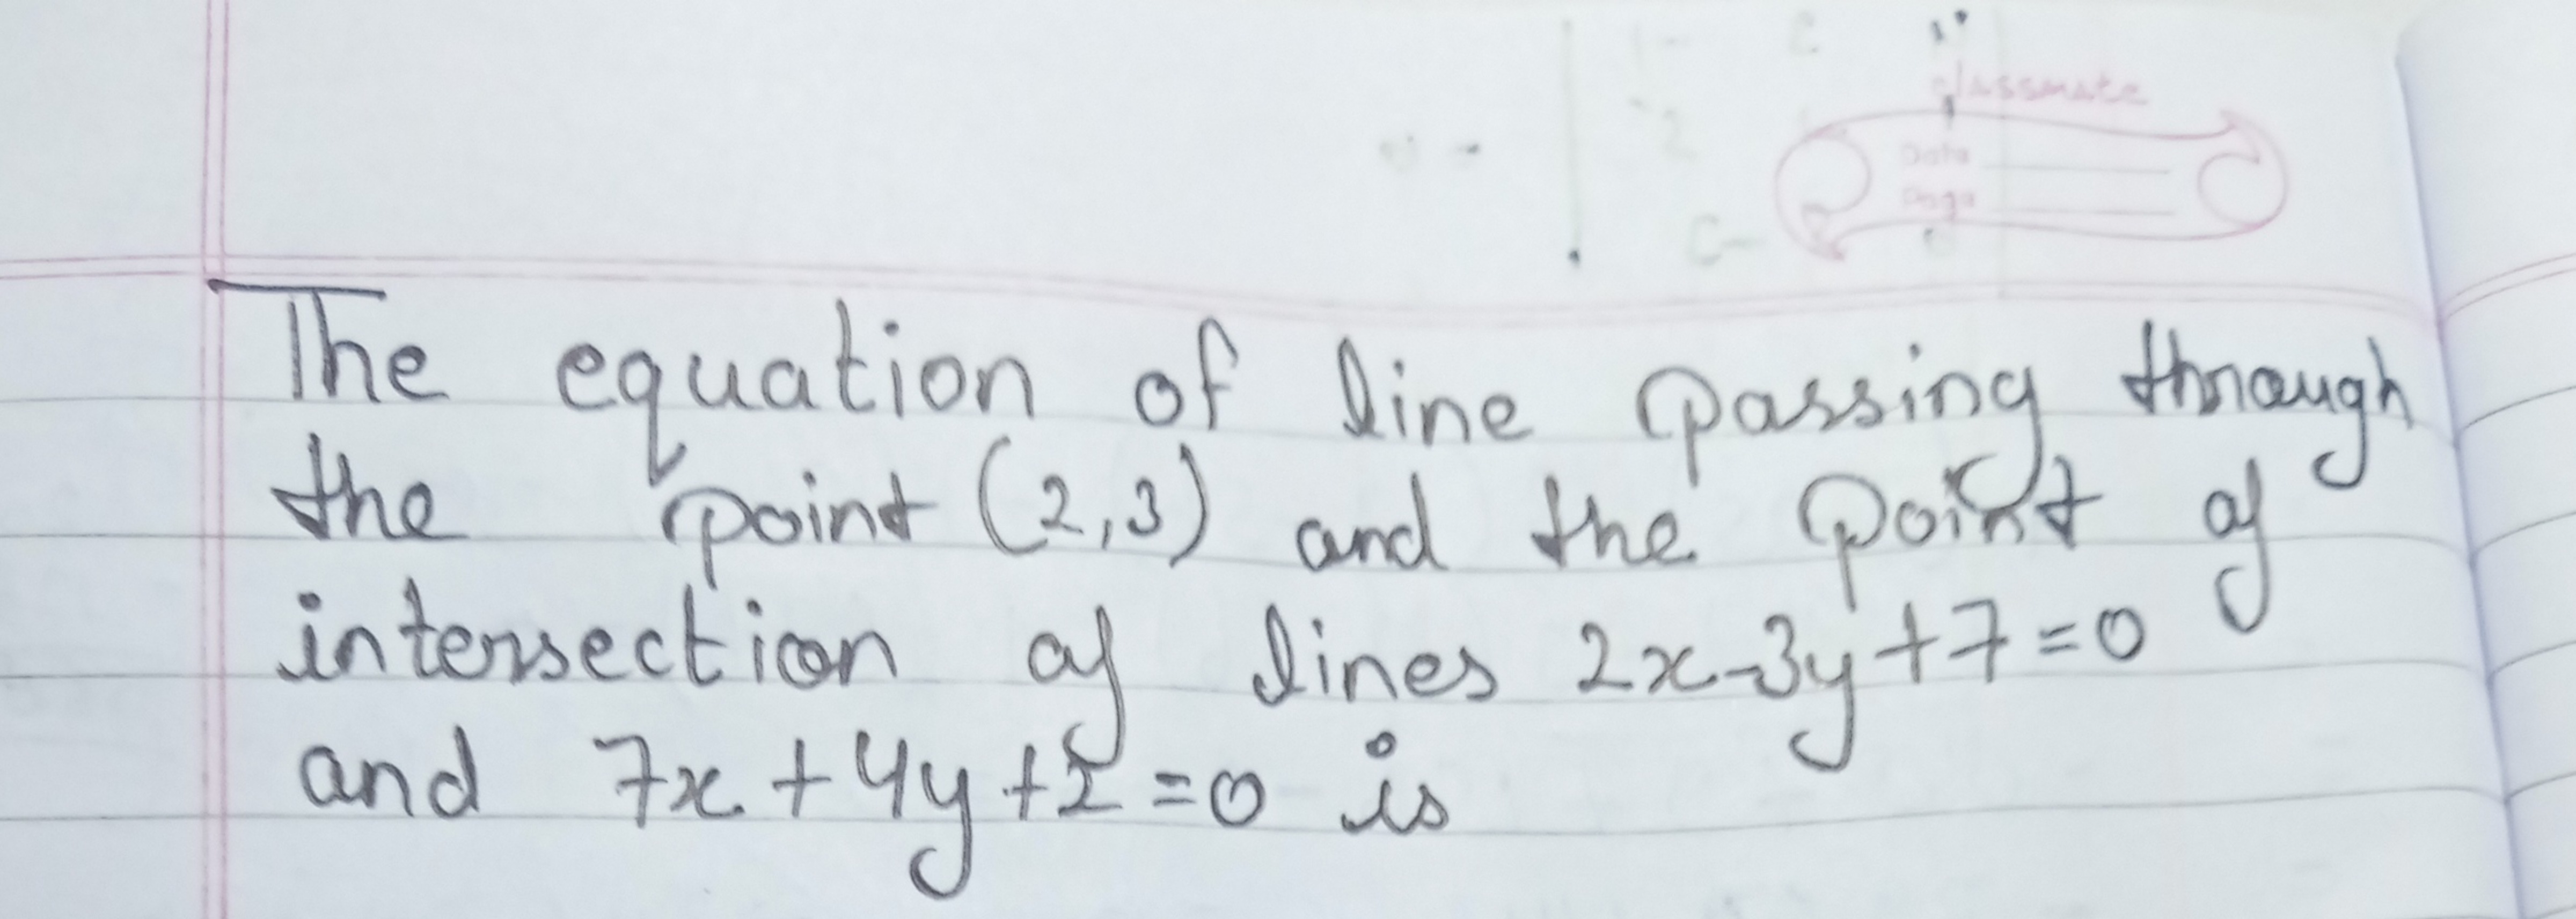 classmate
Date
Page
The equation of line passing through
the point (2,3) and the point of
intersection of lines 2x-3y+7=0
and 7x+4y+2=0 is